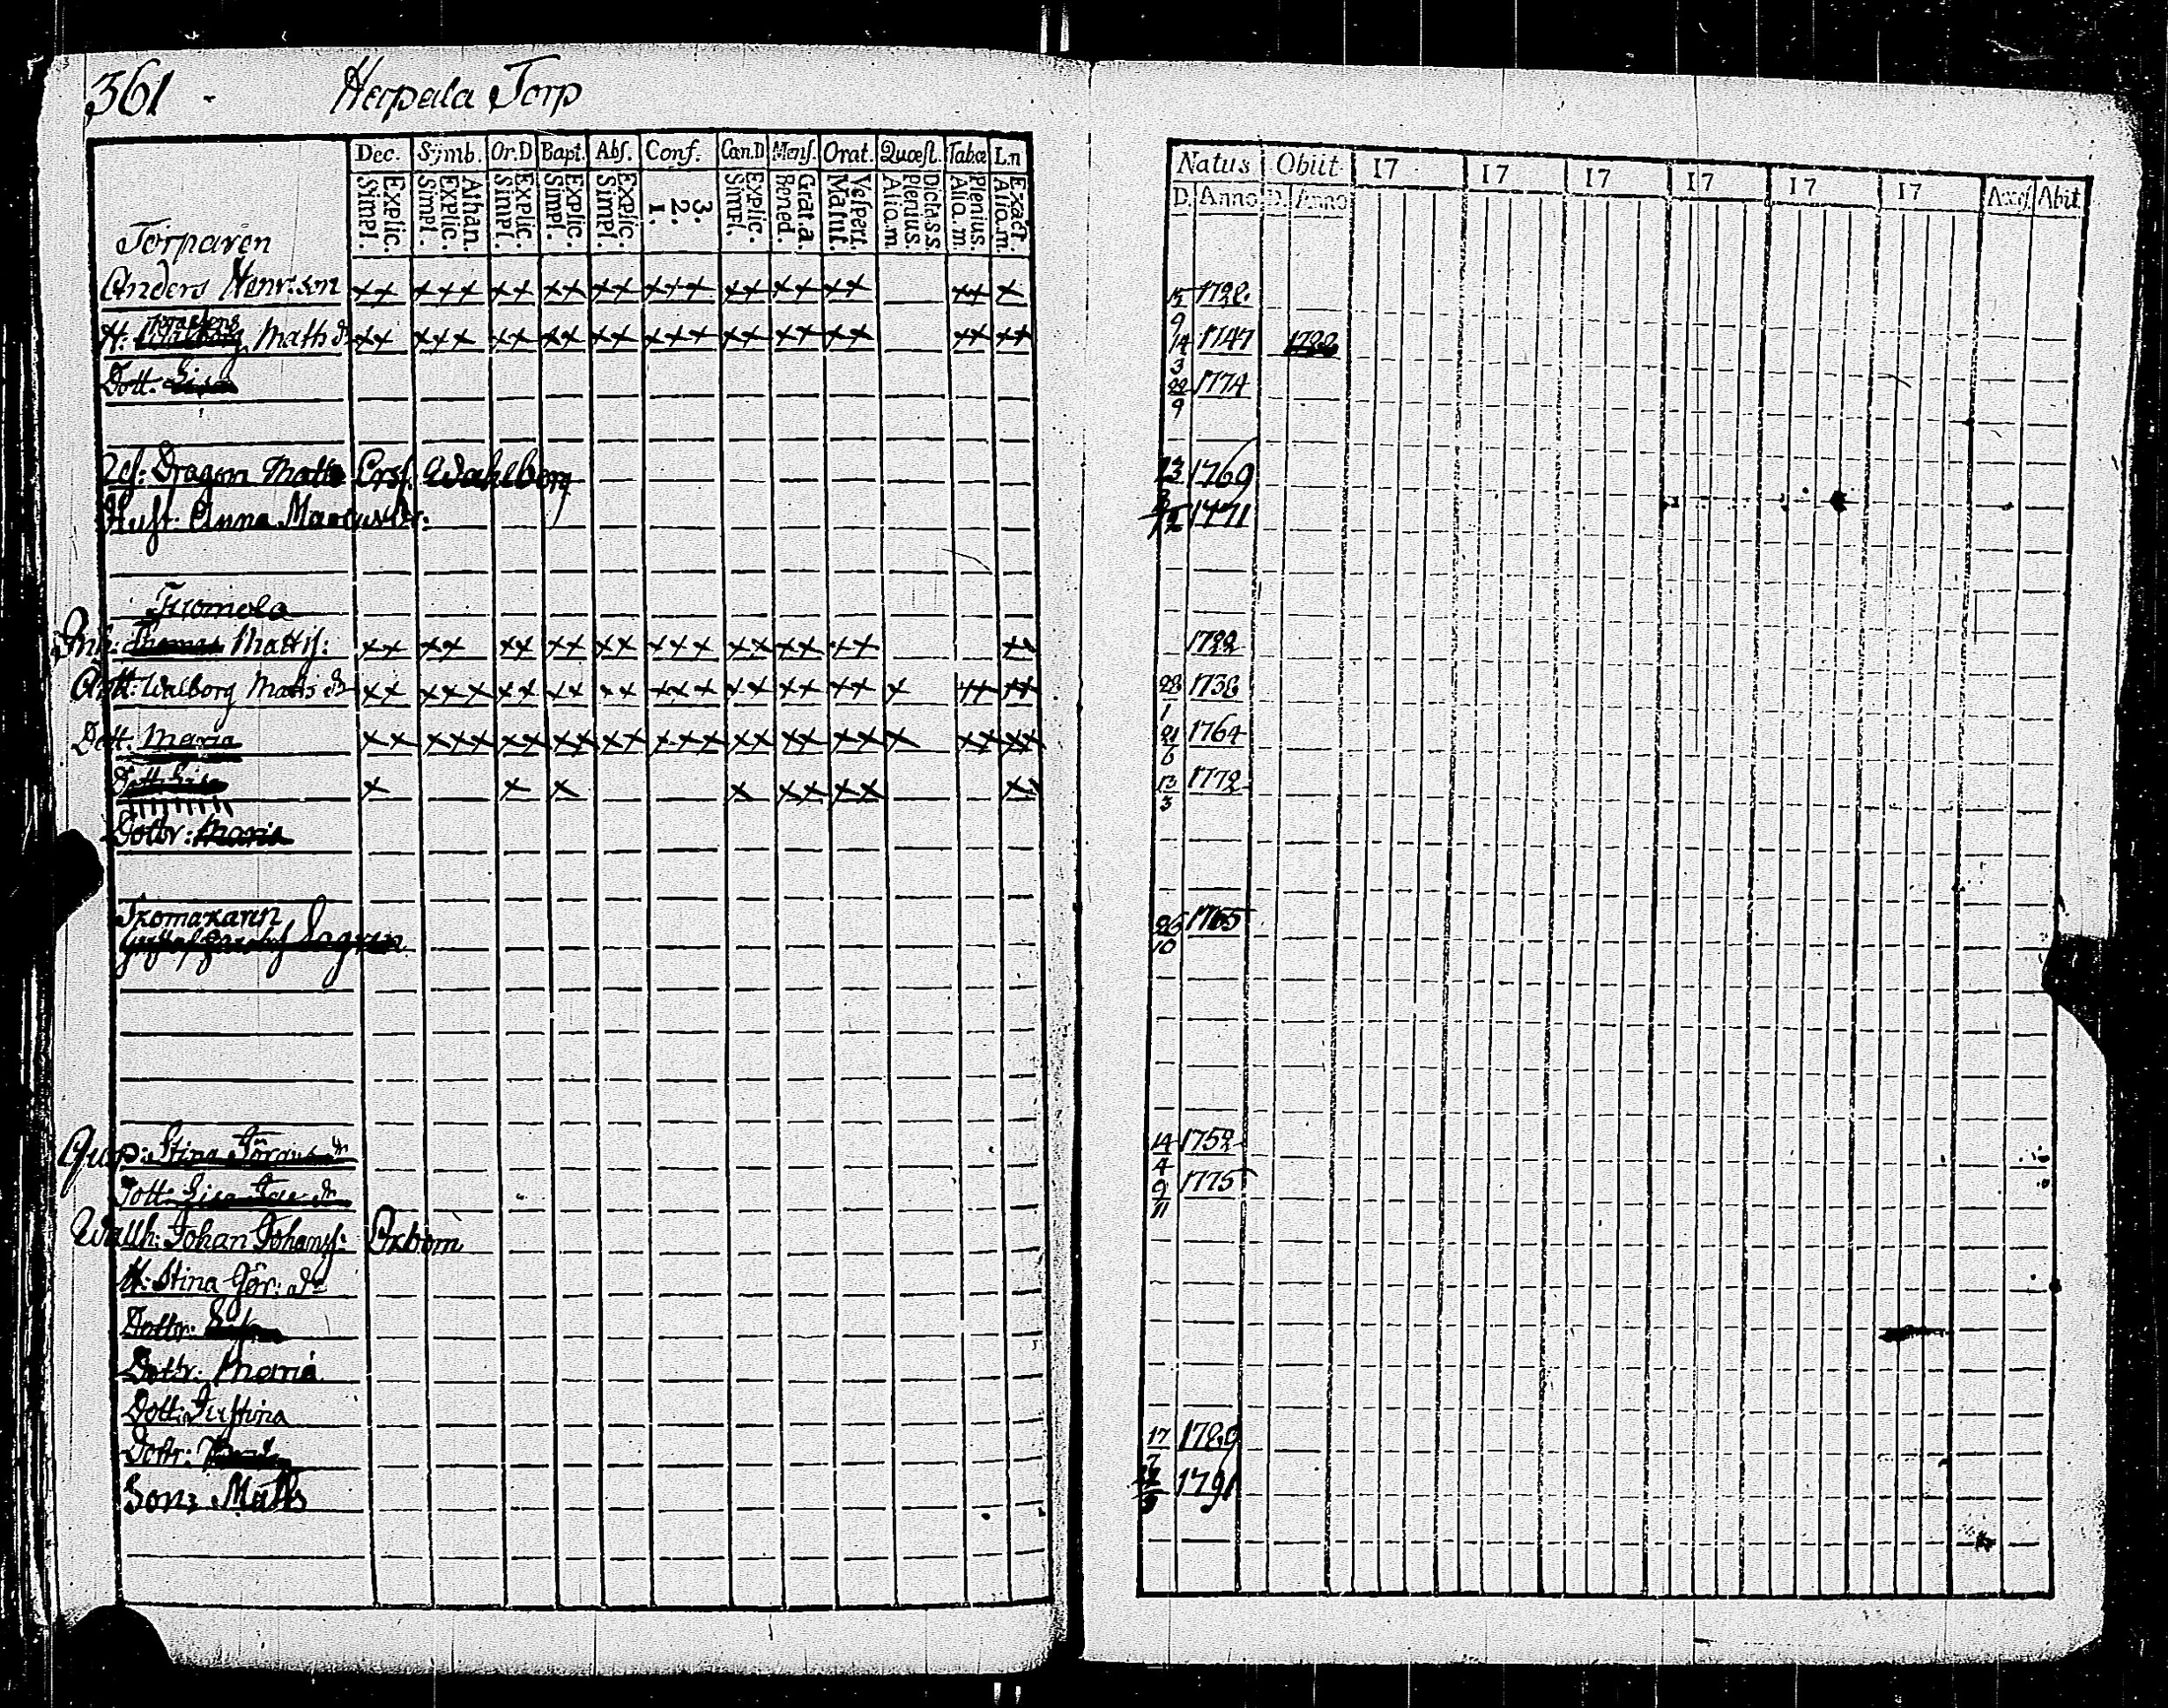 361 - Herpala Torp
Dec. Symb. Or.D Bapt. Abſ. Conf. Can.D Menſ. Orat. Quæſt. Tabæ L.n
Simpl. Explic. Simpl. Explic. Athan. Simpl. Explic. Simpl. Explic. Simpl. Explic. 1. 2. 3. Simpl. Explic. Bened. Grat.a. Matut. Veſpert. Alio.m. Plenius. Dicta.s.s. Alio.m. Plenius. Alio.m. Exact.
Natus Obiit 17 17 17 17 17 17 Acceſ. Abit.
D. Anno D. Anno
Torparen
Anders Henr:son xx xxx xx xx xx xxx xx xx xx xx x 1728.
H: Walborg Matts dr xx xxx xx xx xx xxx xx xx xx xx xx 9 14/3 1747 1788
Dott. Lisa 22/9 1774
Dragon Matts Ersſ. Wahlberg 1769
Huſt. Anna Marcusdr. 1771
Tuomola
Inh: Thomas Mattiſ: xx xx xx xx xx xxx xx xx xx xx 1722
Walborg Matts dr xx xxx xx xx xx xxx xx xx xx x xx xx 28/1 1738
Dott. Maria xx xxx xx xx xx xxx xx xx xx x xx xx 21/6 1764
Dott. Lisa x x x x xx xx xx 13/3 1772
Dottr: Maria
Skomakaren
Gustaf Lagren 26/10 1765
Qwp: Stina Görans dr 14/4 1752
Dott: Lisa dr 9/11 1775
Wallh: Johan Johanſ: Oxbom
H: Stina Gör: dr
Dottr:
Dottr: Maria
Dott: Justina
Dottr: 17 1789
Son: Matts 1791